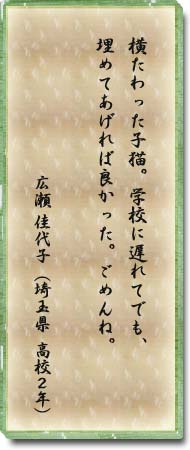 横たわった子猫。学校に遅れてでも、
埋めてあげれば良かった。ごめんね。
広瀬 佳代子 (埼玉県 高校2年)